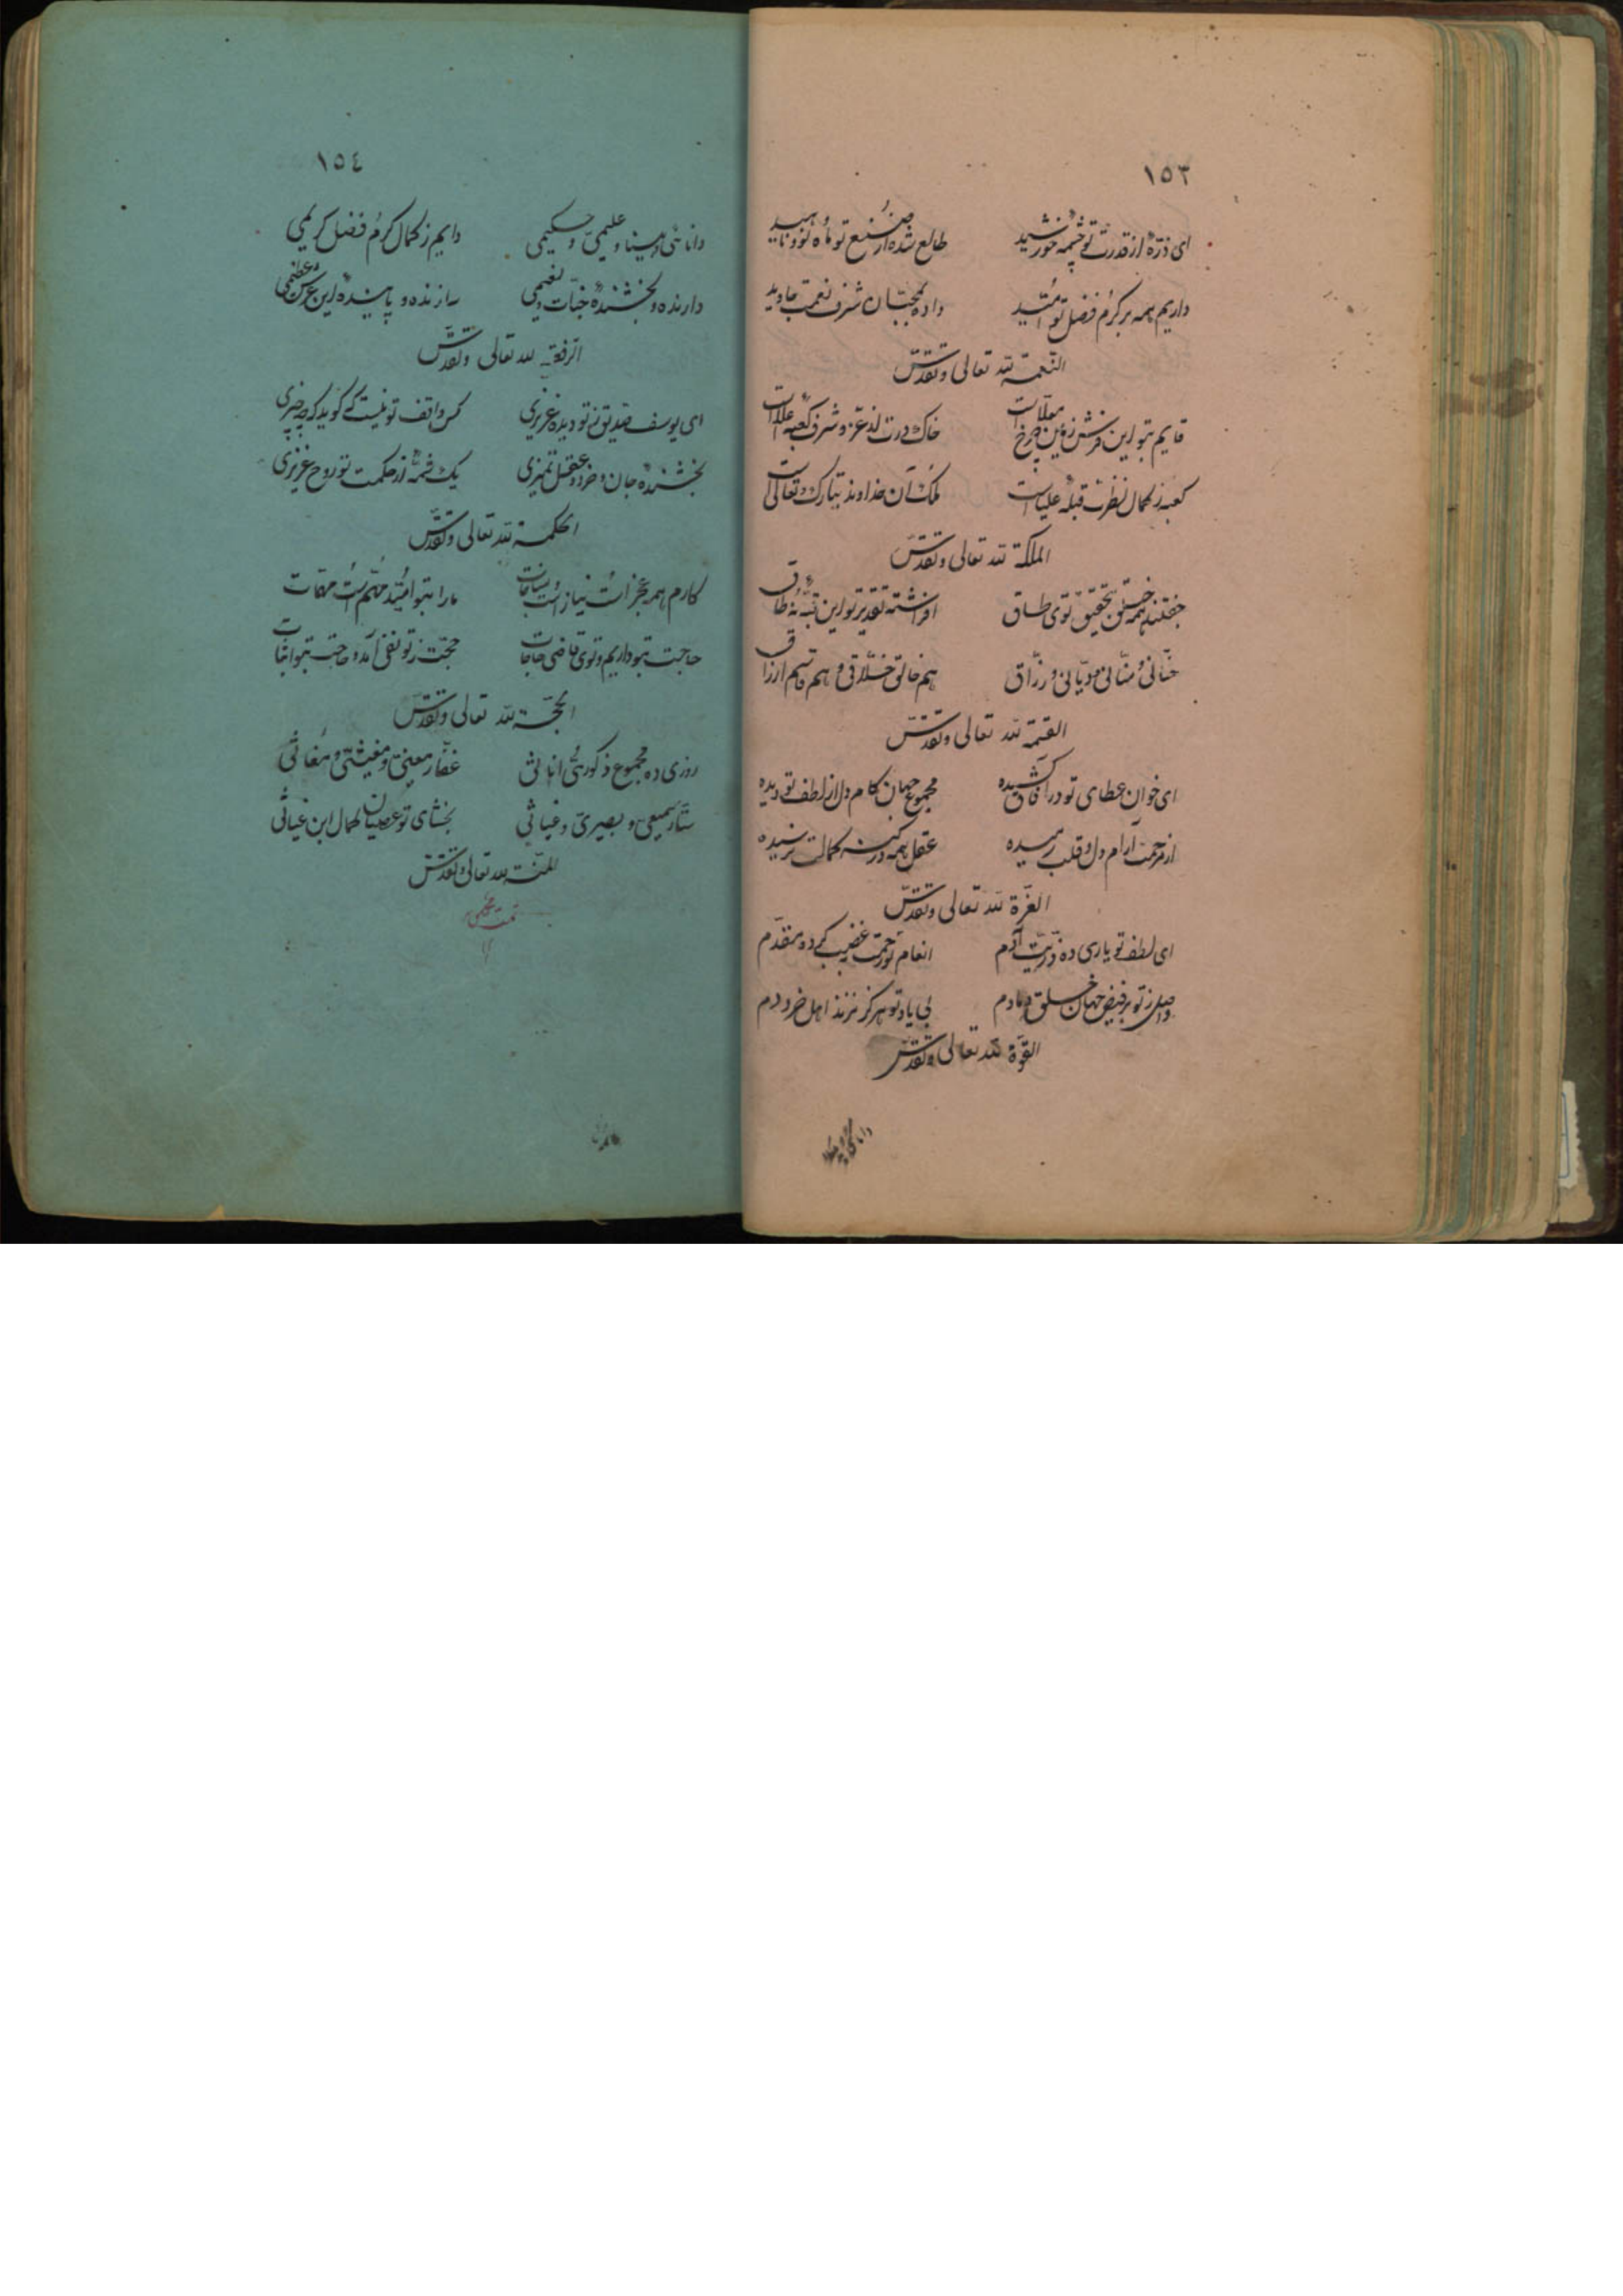 ١٥٣
ای ذرّهٔ از قدرت تو چشمهٔ خورشید طالع شده از صنع تو ماه نو و ناهید
داریم همه بر کرم فضل تو امّید داده بمحبّان شرف نعمت جاوید
النّعمة لله تعالی و تقدّس
قایم بتو این فرش زمین چرخ معلّاست خاک درت از عزّ و شرف کعبهٔ
کعبه ز کمال نظرت قبلهٔ علیاست ملک آن خداوند تبارک و تعالی است
الملکة لله تعالی و تقدّس
جفتند همه خلق بتحقیق توی طاق افراشته تقدیر تو این قبّهٔ نه طاق
حنّانی و منّانی و دیّانی و رزّاق هم خالق خلّاقی و هم قاسم ارزاق
القسمة لله تعالی و تقدّس
ای خوان عطای تو در آفاق کشیده مجموع جهان کام دل از لطف تو دیده
از مرحمت آرام دل و قلب رمیده عقل همه در کنه کمالت نرسیده
العزّة لله تعالی و تقدّس
ای لطف تو یاری ده ذرّیت آدم انعام تو رحمت غضب کرده مقدّم
واصل ز تو بر فیض جهان خلق دمادم بی یاد تو هرگز نزند اهل خرد دم
القوّة لله تعالی و تقدّس
١٥٤
دانائی و بینا و علیمی و حکیمی دایم ز کمال کرم فضل کریمی
دارنده و بخشندهٔ جنّات و نعیمی سازنده و پایندهٔ این عرش عظیمی
الرّفعة لله تعالی و تقدّس
ای یوسف صدیق ز تو دیده عزیزی کس واقف تو نیست که گوید که چه چیزی
بخشندهٔ جان و خرد و عقل تمیزی یک شمّه از حکمت تو روح عزیزی
الحکمة لله تعالی و تقدّس
کارم همه عجز است نیاز است مناجات ما را بتو امّید مهم است مهمّات
حاجت بتو داریم و توی قاضی حاجات حجّت ز تو نفی آمد و حاجت بتو اثبات
الحجّة لله تعالی و تقدّس
روزی ده مجموع ذکوری اناثی غفّار معینی و مغیثی و مغاثی
ستّار سمیعی و بصیری و غیاثی بخشای تو عصیان کمال ابن غیاثی
المنّة لله تعالی و تقدّس